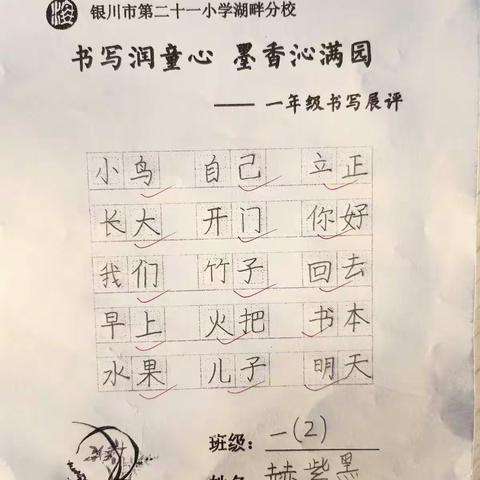 银川市第二十一小学湖畔分校
书写润童心 墨香沁满园
—— 一年级书写展评
小鸟 自己 立正
长大 开门 你好
我们 竹子 回去
早上 火把 书本
水果 儿子 明天
班级：一(2)
姓名 赫紫黑